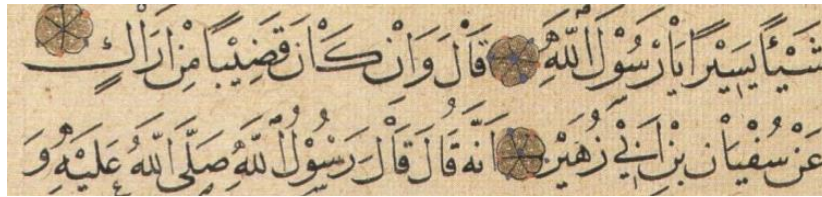 شَيْئًا يَسِيْرًا يَاْرَسُوْلَ اللّٰهِ قَاْلَ وَاِنْ كَاْنَ قَضِيْبًا مِنْ اَرَاْكٍ
عَنْ سُفْيَاْن بْنِ اَبِيْ زُهَيْرٍ اَنَّه قَاْلَ قَاْلَ رَسُوْلُ اللّٰهِ صَلَّى اللّٰهُ عَلَيْهِ وَ